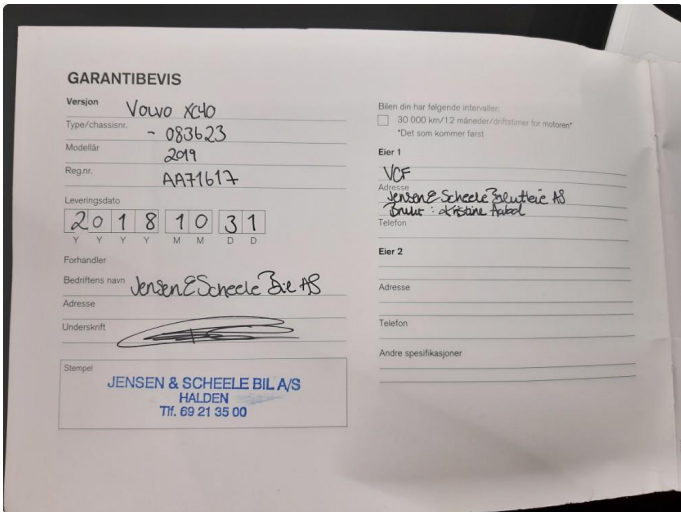 GARANTIBEVIS
Versjon Volvo XC40
Type/chassisnr. - 083623
Modellår 2019
Reg.nr. AA71617
Leveringsdato
2 0 1 8 1 0 3 1
Y Y Y Y M M D D
Forhandler
Bedriftens navn Jensen & Scheele Bil AS
Adresse
Underskrift
Stempel
JENSEN & SCHEELE BIL A/S
HALDEN
Tlf. 69 21 35 00
Bilen din har følgende intervaller:
30 000 km/12 måneder/driftstimer for motoren*
*Det som kommer først
Eier 1
VCF
Adresse
Jensen & Scheele Bilutleie AS
Bruker : Kristine
Telefon
Eier 2
Adresse
Telefon
Andre spesifikasjoner